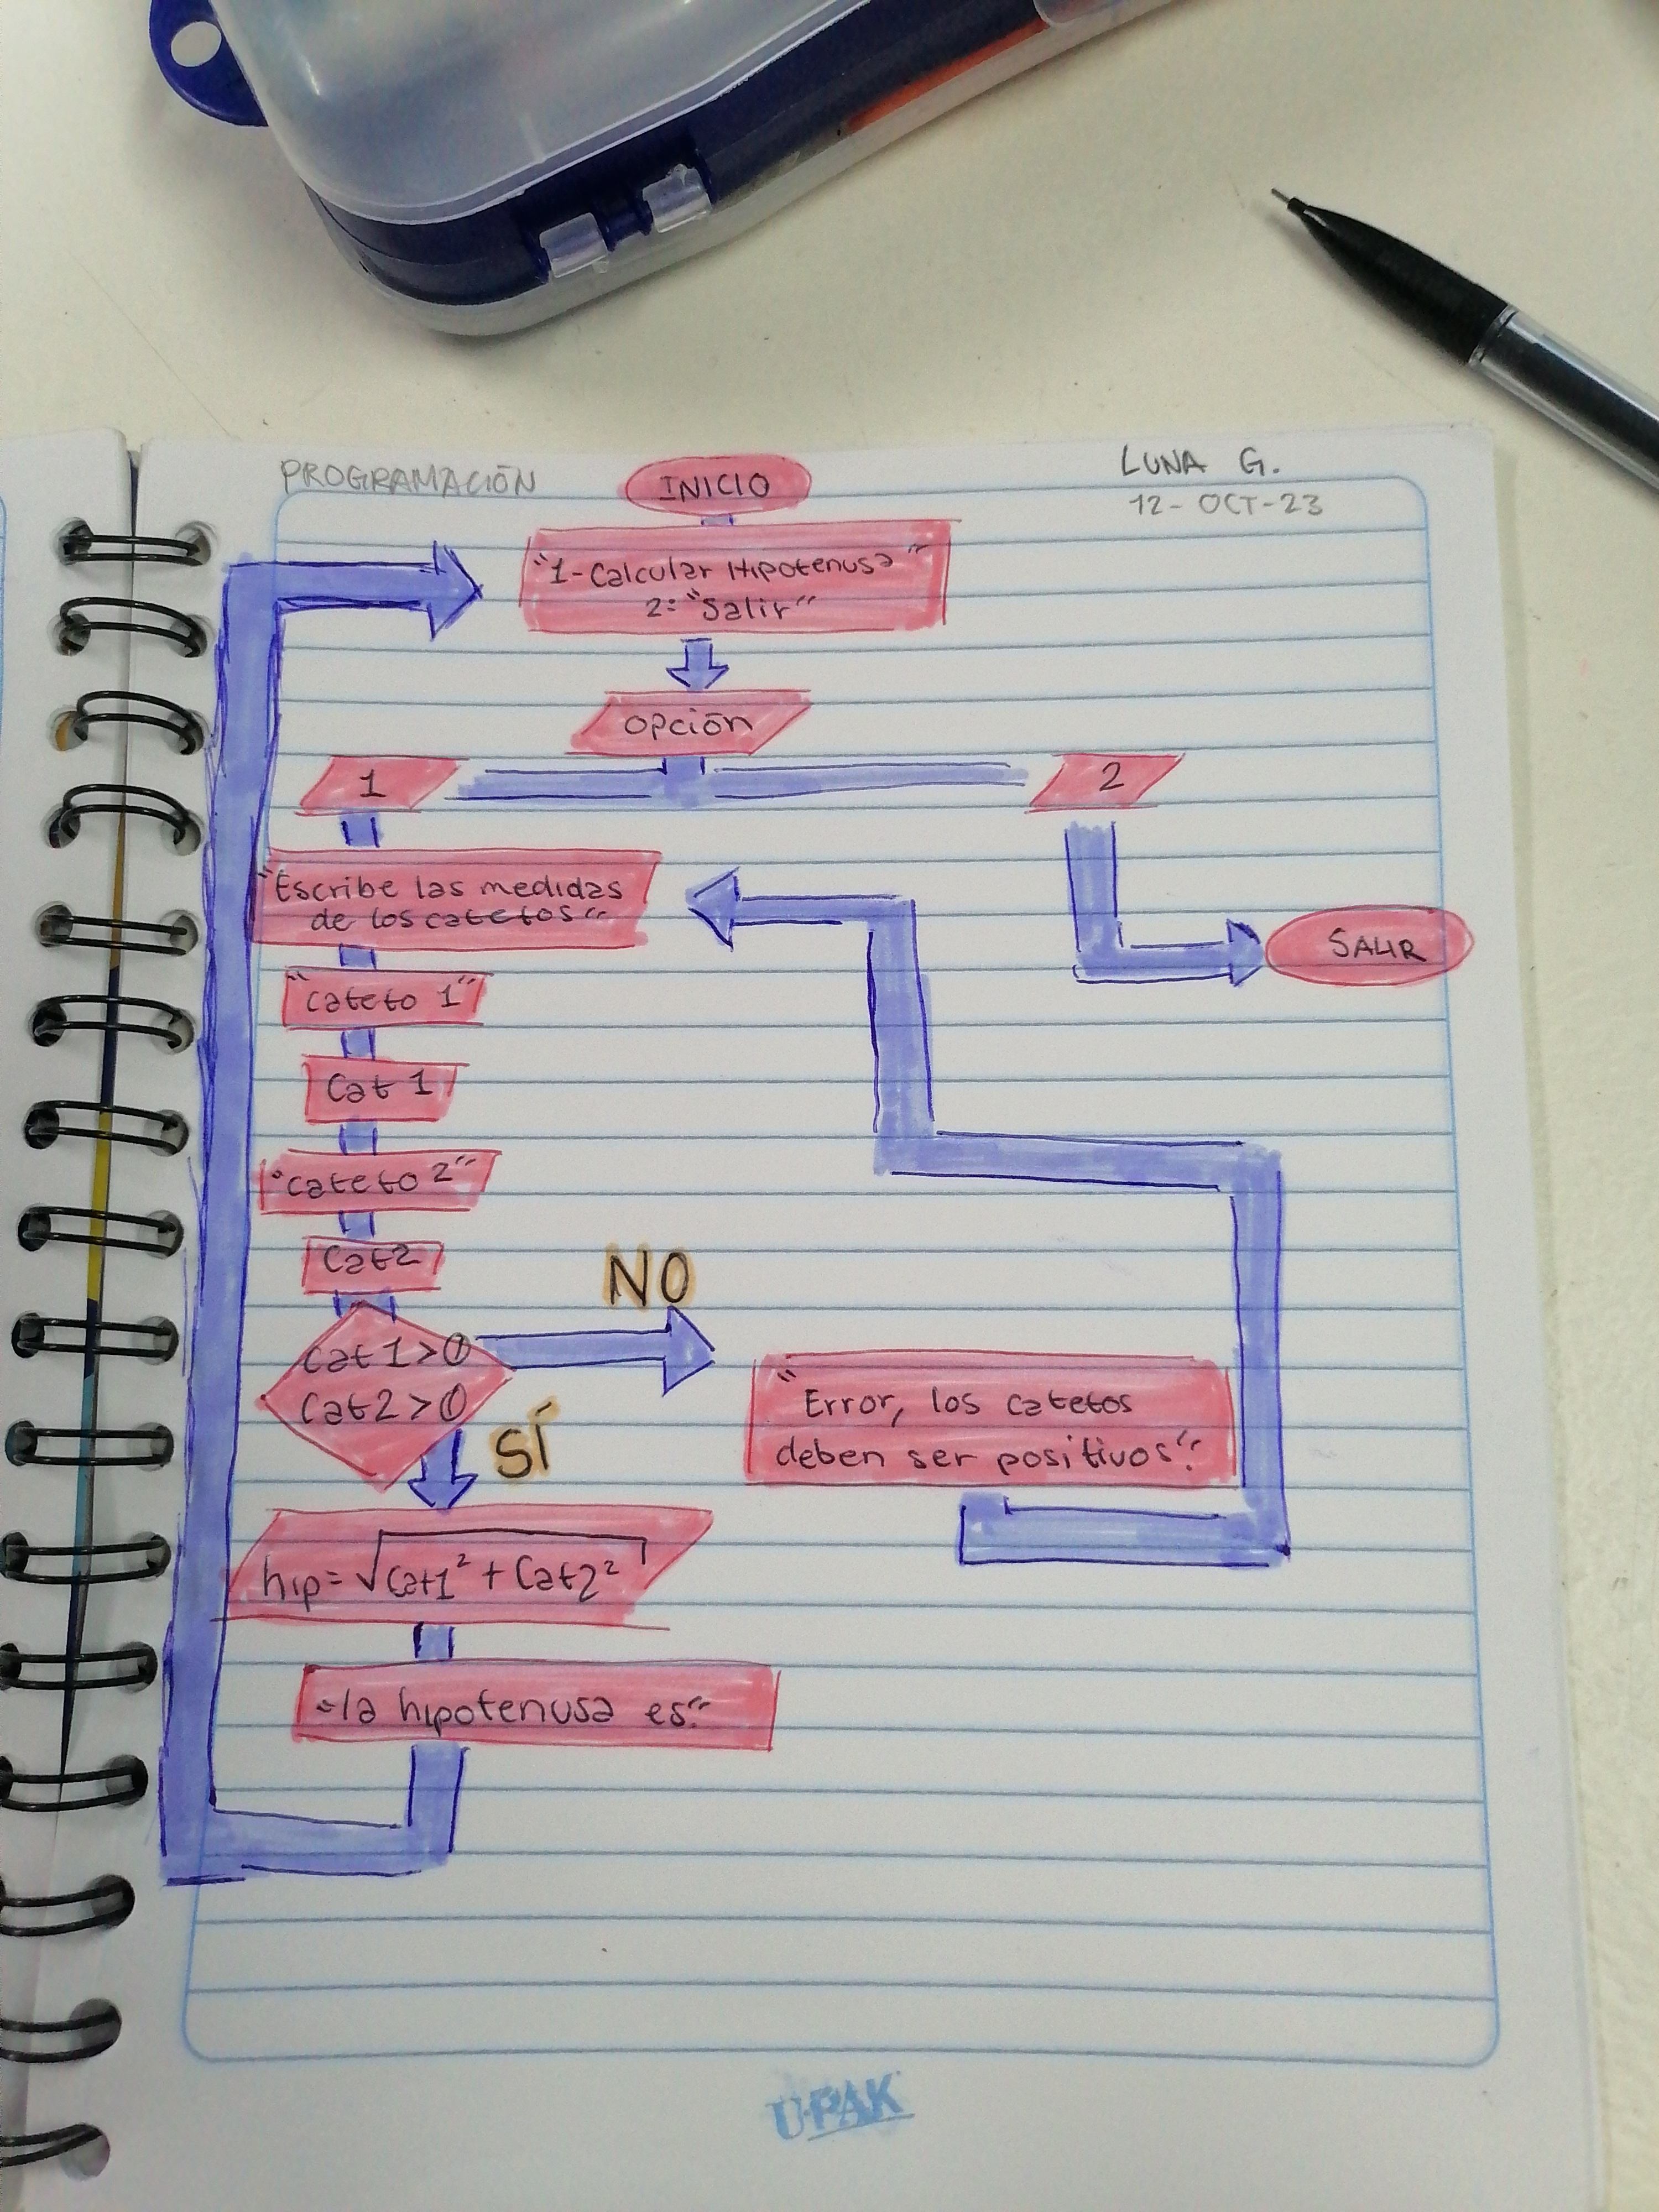 PROGRAMACIÓN
INICIO
LUNA G.
12-OCT-23
"1-Calcular Hipotenusa"
2: "Salir"
opción
1
2
"Escribe las medidas
de los catetos"
SALIR
"cateto 1"
Cat 1
"cateto 2"
Cat2
NO
cat 1>0
Cat2>0
SÍ
"Error, los catetos
deben ser positivos."
hip=√cat1² + Cat2²
"la hipotenusa es:"
U-PAK